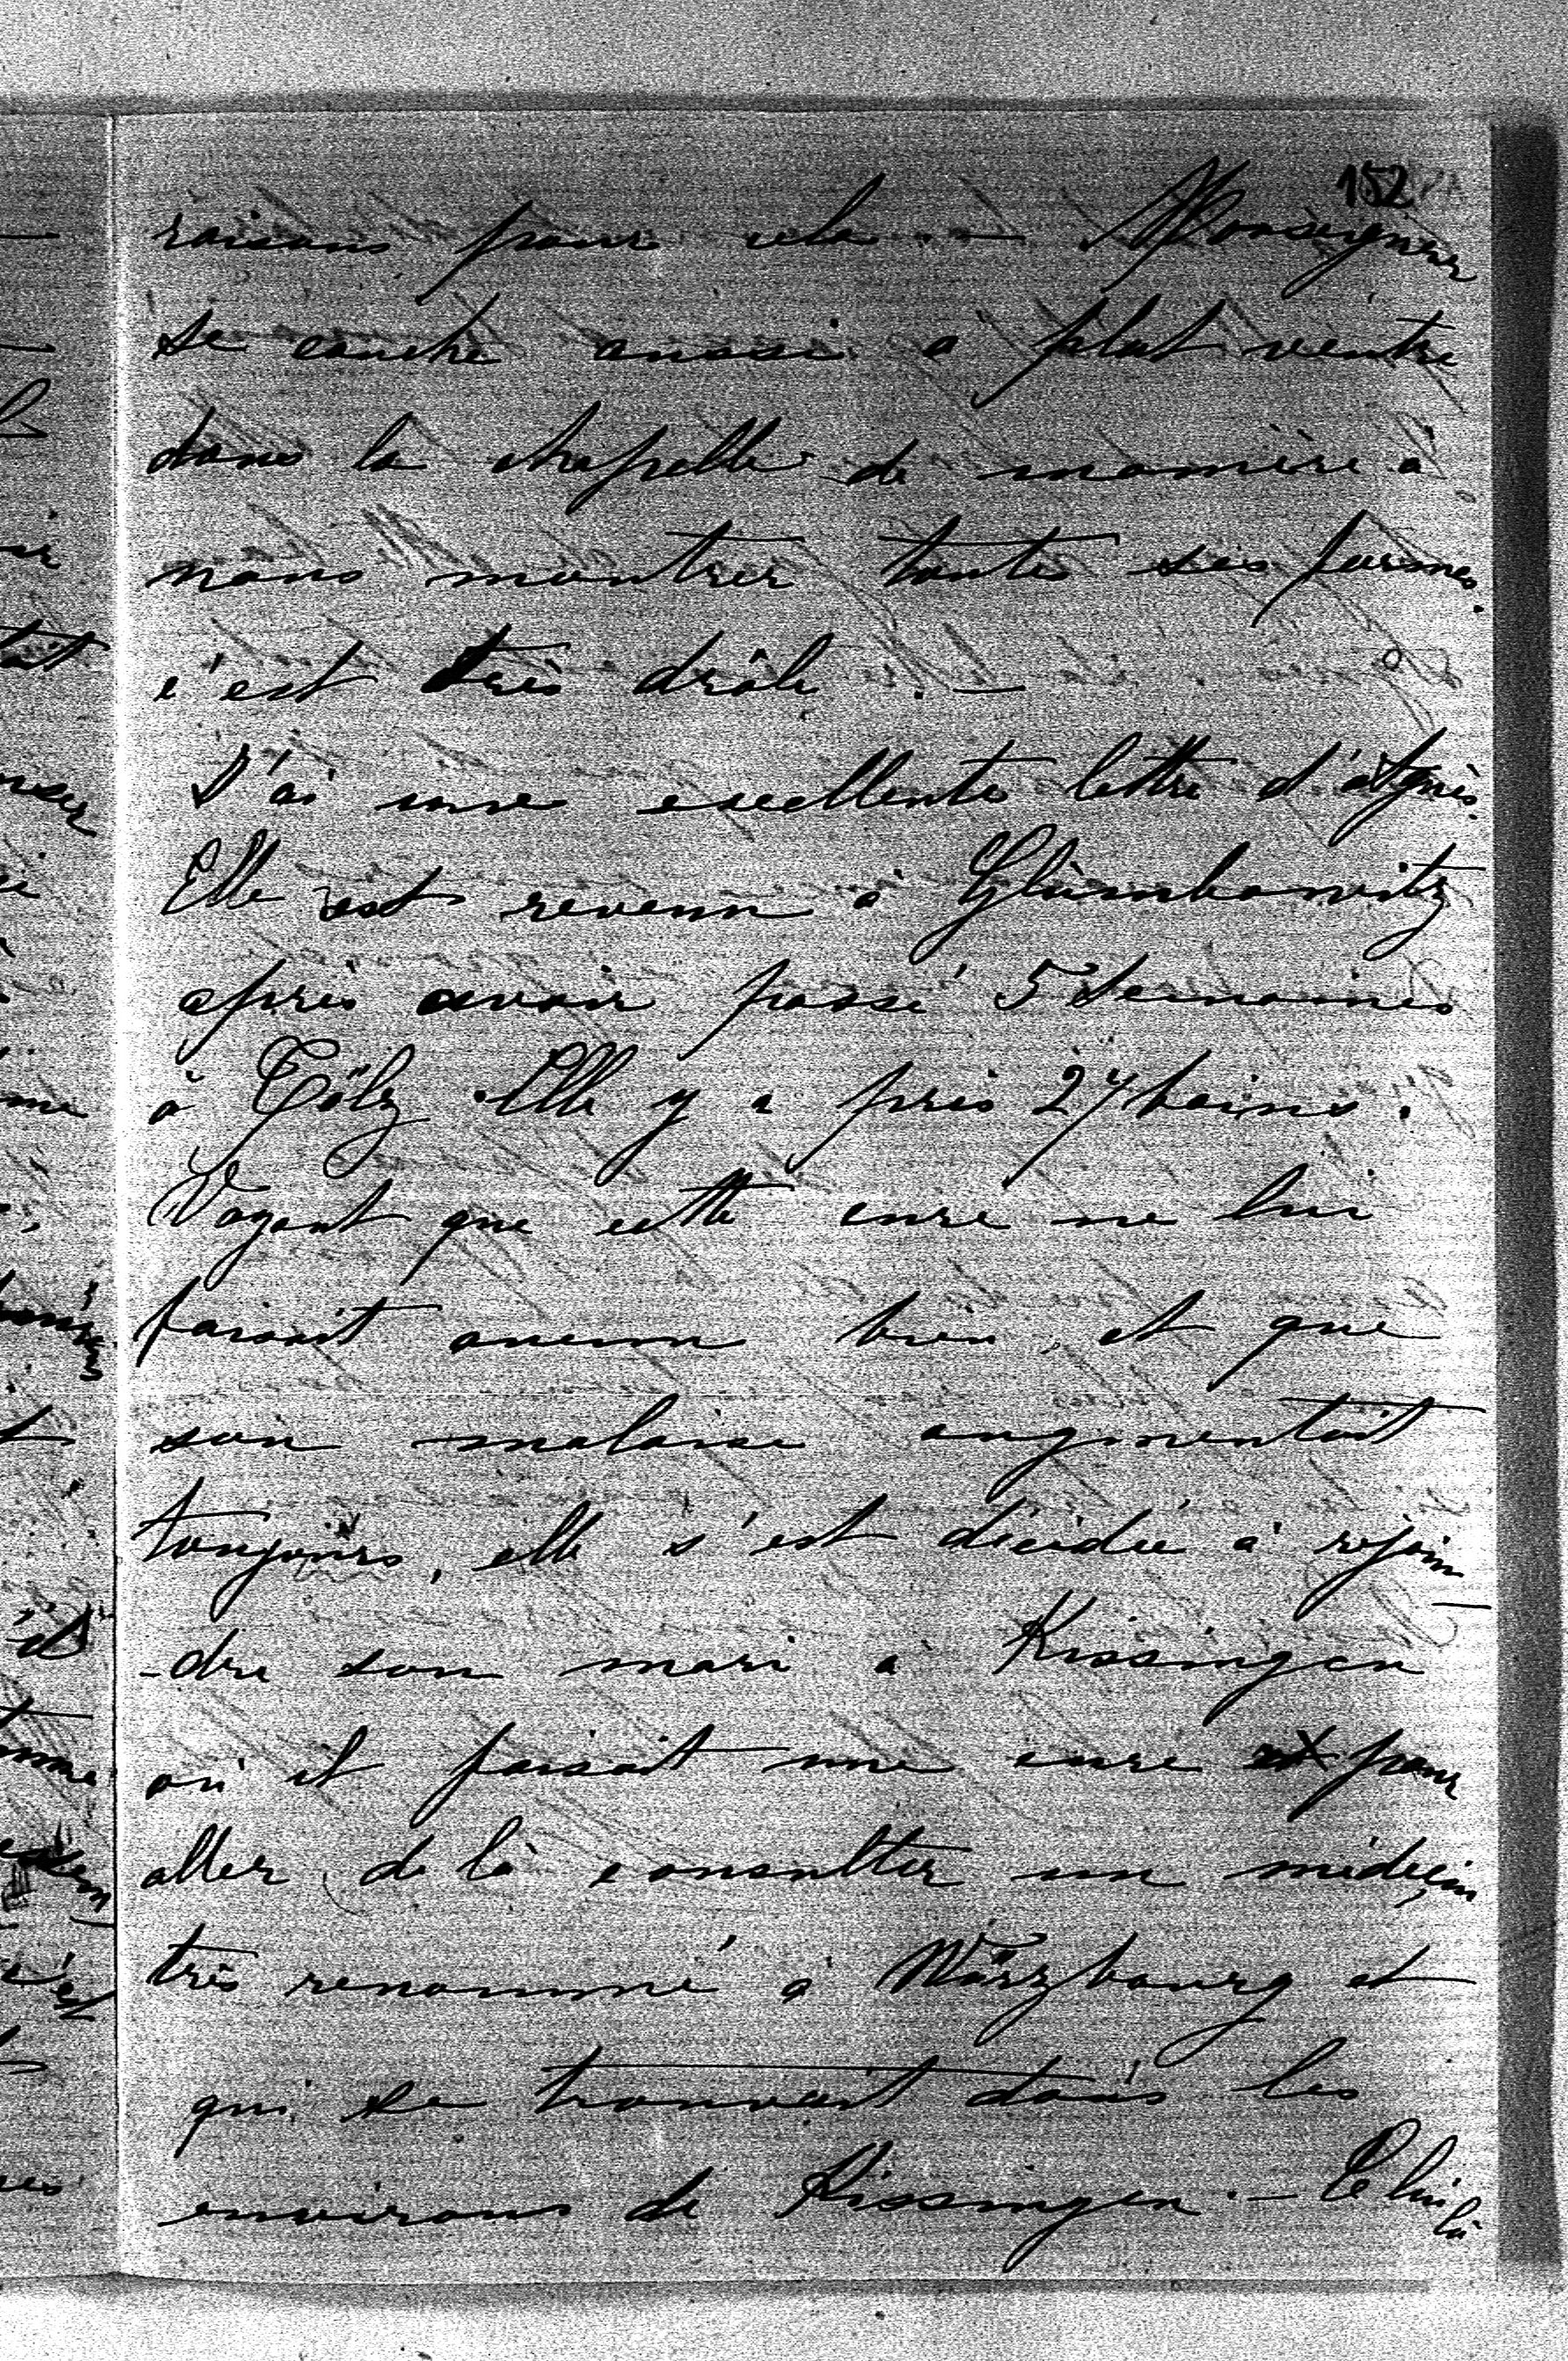 152
raisons pour cela. — Monseigneur
se couche aussi à plat ventre
dans la chapelle de manière à
nous montrer toutes ses formes.
c'est très drôle. —
J'ai une excellente lettre d'Agnès.
Elle est revenu à Glumbowitz
après avoir passé 5 Semaines
à Tölz. Elle y a pris 27 bains.
Voyant que cette cure ne lui
faisait aucun bien et que
son malaise augmentait
toujours, elle s'est décidée à rejoin-
-dre son mari à Kissingen
où il faisait une cure pour
aller de là consulter un médecin
très renommé à Würzbourg et
qui se trouvait dans les
environs de Kissingen. — Celui
là